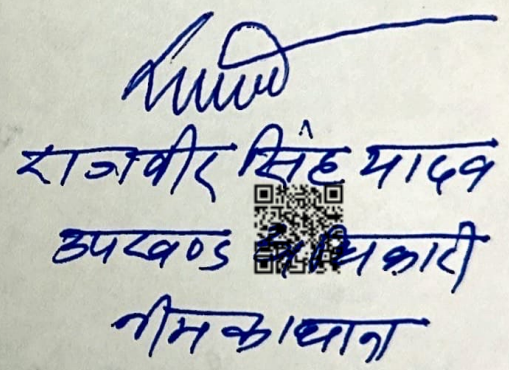 राजवीर सिंह यादव
उपखण्ड अधिकारी
नीमकाथाना